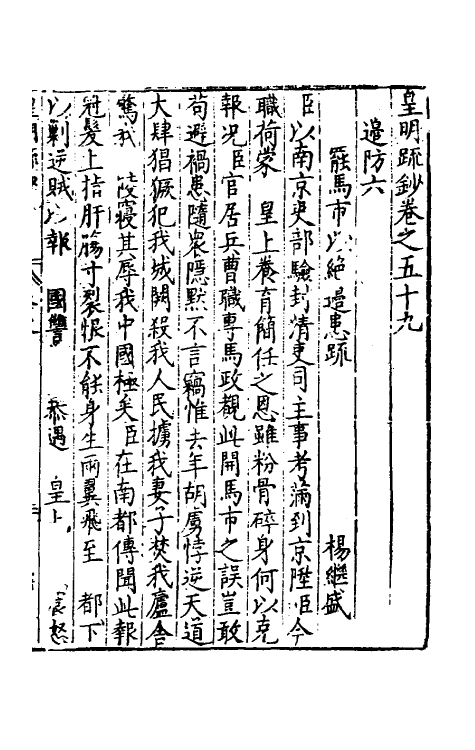 皇明疏鈔卷之五十九
邊防六
罷馬市以絶邊患疏 楊繼盛
臣以南京吏部驗封清吏司主事考滿到京陞臣今
職荷蒙 皇上養育簡任之恩雖粉骨碎身何以克
報况臣官居兵曹職專馬政觀此開馬市之誤豈敢
苟避禍患隨衆隱默不言竊惟去年胡虜悖逆天道
大肆猖獗犯我城闕殺我人民擄我妻子焚我廬舍
驚我 陵寢其辱我中國極矣臣在南都傳聞此報
冠髮上指肝腸寸裂恨不能身生兩翼飛至 都下
以剿逆賊以報 國讐 恭遇 皇上